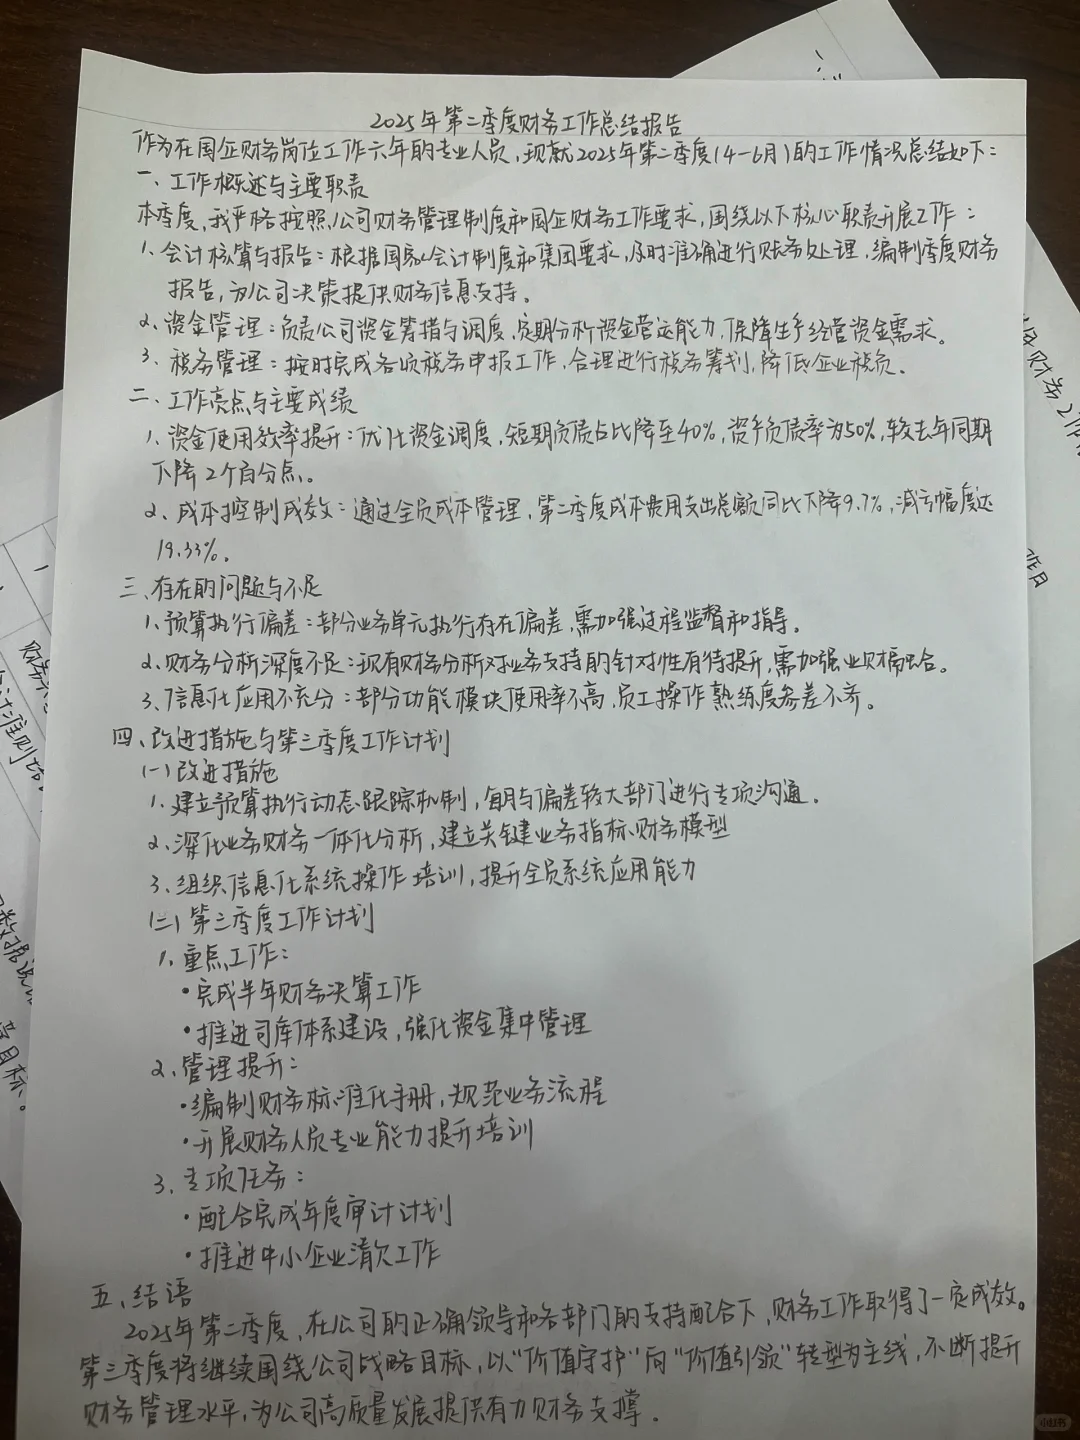 2025年第二季度财务工作总结报告
作为在国企财务岗位工作六年的专业人员，现就2025年第二季度(4-6月)的工作情况总结如下：
一、工作概述与主要职责
本季度，我严格按照公司财务管理制度和国企财务工作要求，围绕以下核心职责开展工作：
1、会计核算与报告：根据国家会计制度和集团要求，及时准确进行账务处理，编制季度财务
报告，为公司决策提供财务信息支持。
2、资金管理：负责公司资金筹措与调度，定期分析资金营运能力，保障生产经营资金需求。
3、税务管理：按时完成各项税务申报工作，合理进行税务筹划，降低企业税负。
二、工作亮点与主要成绩
1、资金使用效率提升：优化资金调度，短期负债占比降至40%，资产负债率为50%，较去年同期
下降2个百分点。
2、成本控制成效：通过全员成本管理，第二季度成本费用支出总额同比下降9.7%，减亏幅度达
19.33%。
三、存在的问题与不足
1、预算执行偏差：部分业务单元执行存在偏差，需加强过程监督和指导。
2、财务分析深度不足：现有财务分析对业务支持的针对性有待提升，需加强业财融合。
3、信息化应用不充分：部分功能模块使用率不高，员工操作熟练度参差不齐。
四、改进措施与第三季度工作计划
(一)改进措施
1、建立预算执行动态跟踪机制，每月与偏差较大部门进行专项沟通。
2、深化业务财务一体化分析，建立关键业务指标财务模型
3、组织信息化系统操作培训，提升全员系统应用能力
(二)第三季度工作计划
1、重点工作：
•完成半年财务决算工作
•推进司库体系建设，强化资金集中管理
2、管理提升：
•编制财务标准化手册，规范业务流程
•开展财务人员专业能力提升培训
3、专项任务：
•配合完成年度审计计划
•推进中小企业清欠工作
五、结语
2025年第二季度，在公司的正确领导和各部门的支持配合下，财务工作取得了一定成效。
第三季度将继续围绕公司战略目标，以"价值守护"向"价值引领"转型为主线，不断提升
财务管理水平，为公司高质量发展提供有力财务支撑。
小红书